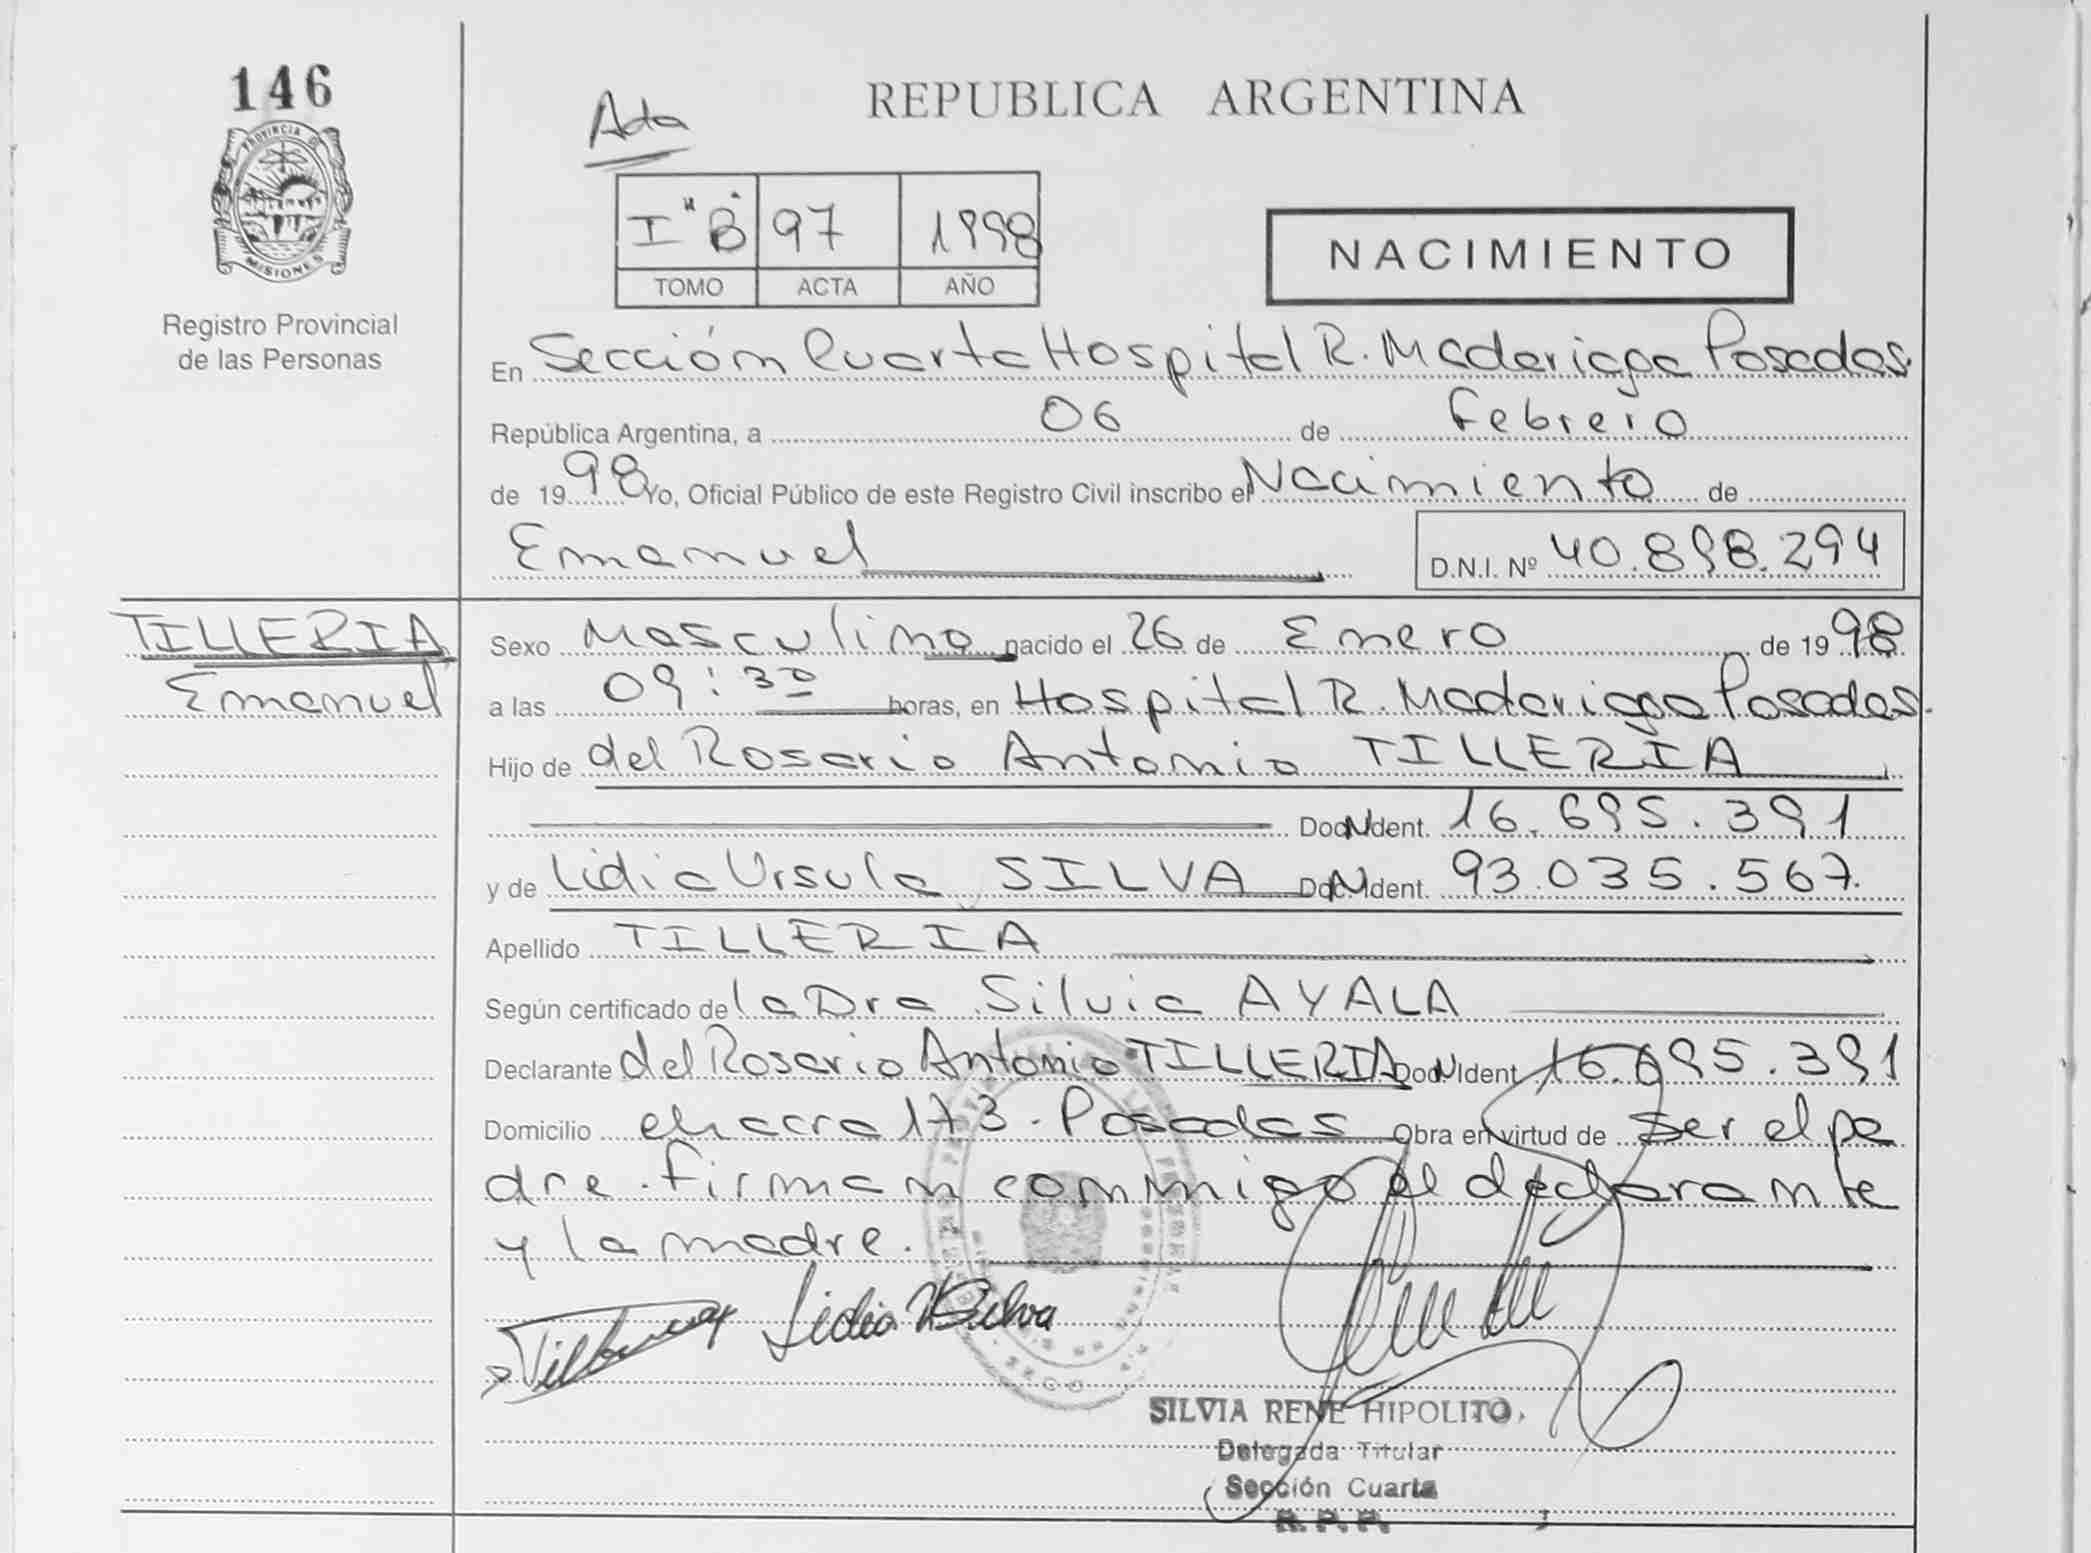 146
PROVINCIA DE
MISIONES
Registro Provincial
de las Personas
Acta
REPUBLICA ARGENTINA
I "B" 97 1998
TOMO ACTA AÑO
NACIMIENTO
En Sección Cuarta Hospital R. Madariaga Posadas.
República Argentina, a 06 de Febrero
de 1998 Yo, Oficial Público de este Registro Civil inscribo el Nacimiento de
Emanuel D.N.I. Nº 40.898.294
TILLERIA
Emanuel
Sexo Masculino nacido el 26 de Enero de 1998
a las 09:30 horas, en Hospital R. Madariaga Posadas.
Hijo de del Rosario Antonio TILLERIA
Doc. Ident. 16.695.391
y de Lidia Ursula SILVA Doc. Ident. 93.035.567.
Apellido TILLERIA
Según certificado de la Dra Silvia AYALA
Declarante del Rosario Antonio TILLERIA Doc. Ident 16.695.391
Domicilio chacra 173 - Posadas Obra en virtud de ser el pa
dre. Firman conmigo el declarante
y la madre.
Lidia U Silva
SILVIA RENE HIPOLITO
Delegada Titular
Sección Cuarta
R. P. P.